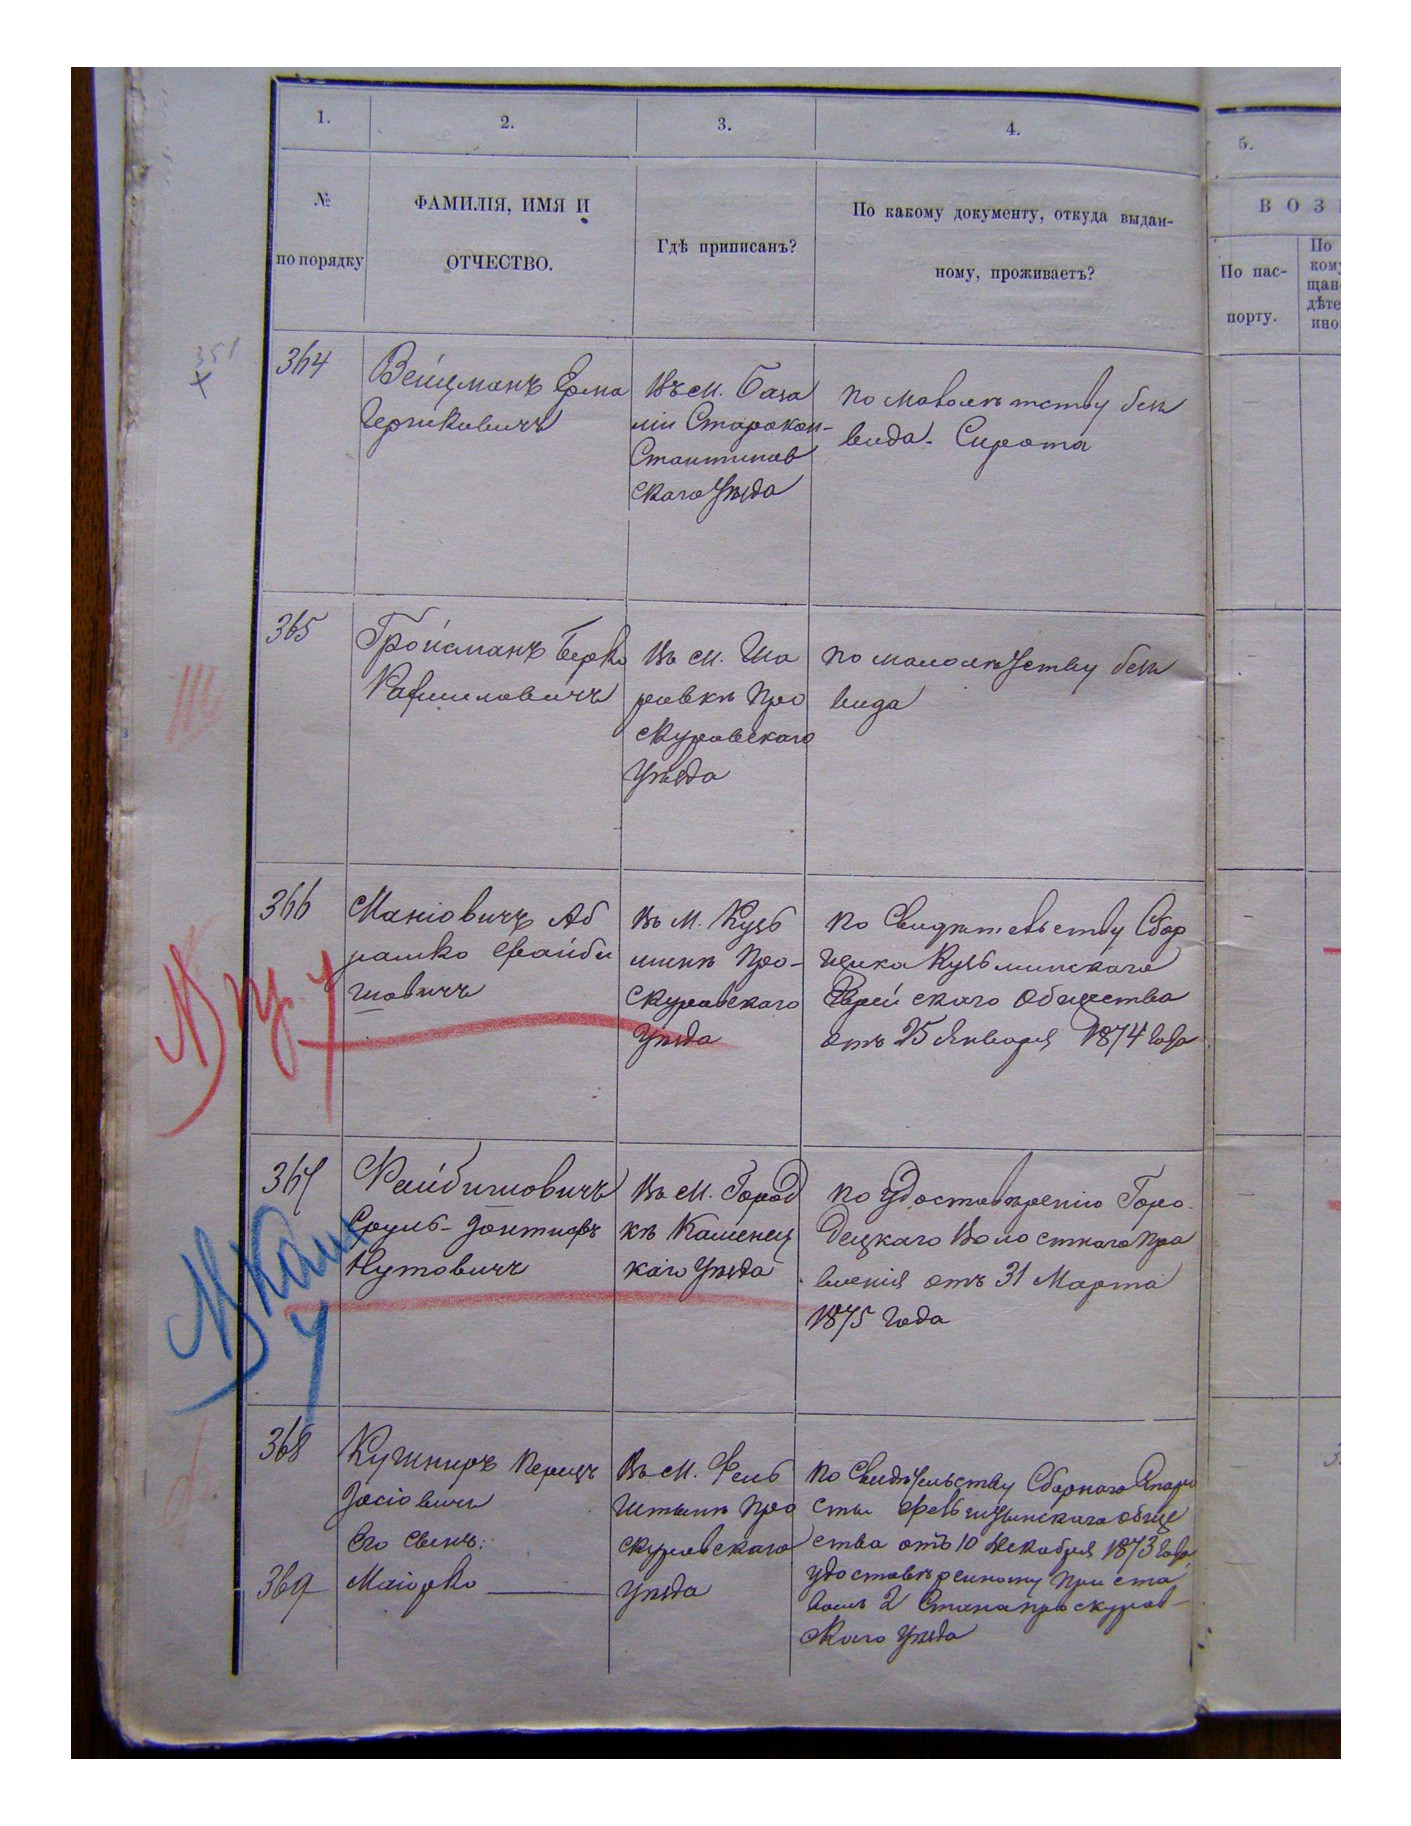 1.
2.
3.
4.
5.
№
по порядку
ФАМИЛІЯ, ИМЯ И
ОТЧЕСТВО.
Гдѣ приписанъ?
По какому документу, откуда выдан-
ному, проживаетъ?
ВОЗ
По пас-
порту.
По
ком
щан
дѣте
ино
351
364
Вейцманъ
Гершковичъ
Въ м. База
ліи Старокон-
стантинов
скаго Уѣзда
по малолѣтству безъ
вида. Сирота
365
Гройсманъ Берко
Рафиловичъ
Въ м. Ша
ровкѣ Про
скуровскаго
Уѣзда
по малолѣтству безъ
вида
366
Маніовичъ Аб
рамко Файби
шовичъ
Въ м. Кузь
минѣ Про-
скуровскаго
Уѣзда
по Свидѣтельству Сбор
щика Кузьминскаго
Еврейскаго Общества
отъ 25 Января 1874 года
367
Файбишовичъ
Сруль-
Нутовичъ
Въ м. Город
кѣ Каменец
каго Уѣзда
по Удостовѣренію Горо-
децкаго Волостнаго Пра
вленія отъ 31 Марта
1875 года
368
Кушниръ Перецъ
Іосіовичъ
Его Сынъ:
Въ м. Фель
штынѣ Про
скуровскаго
Уѣзда
по Свидѣтельству Сборнаго Старо
сты Фельштынскаго обще
ства отъ 10 Декабря 1873 года,
удостовѣренному Приста
вомъ 2 Стана Проскуров-
скаго Уѣзда
369
Маіорко